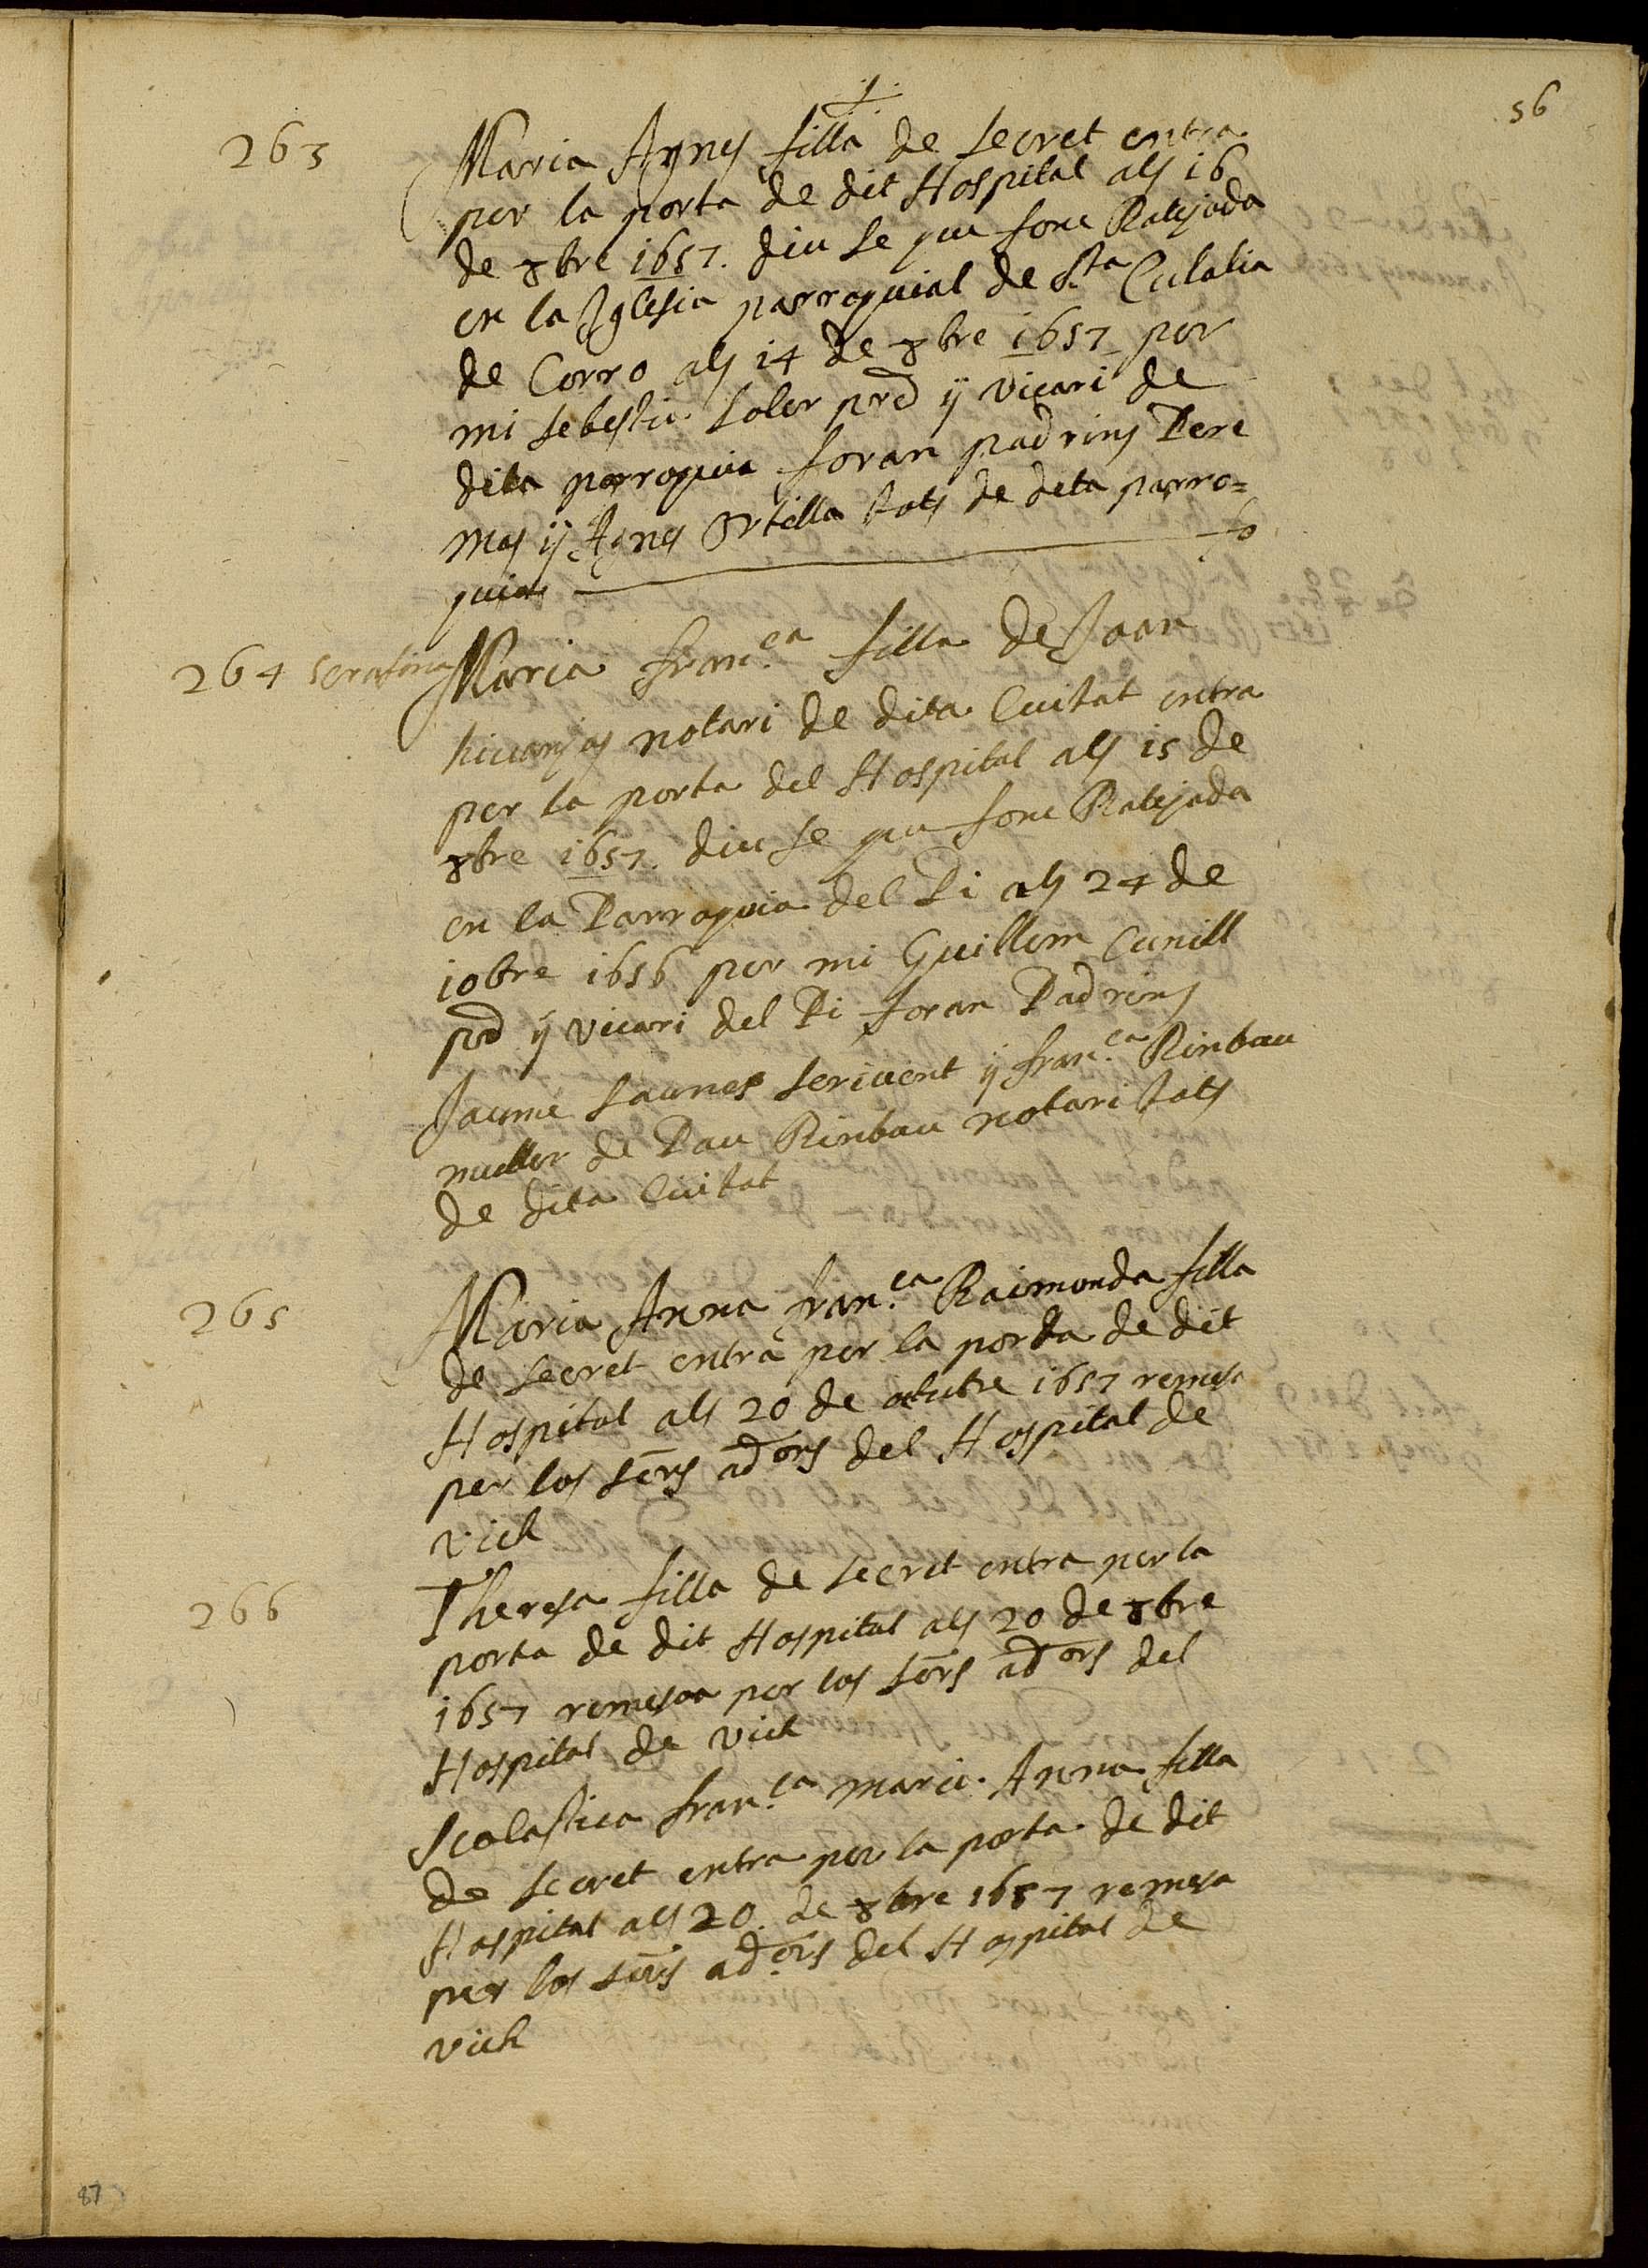 56
263
Maria Agnes filla de secret entra
per la porta de dit Hospital als 16
de 8bre 1657. diu se que fonc Batejada
en la Iglesia parroquial de Sta Eulalia
de Corro als 14 de 8bre 1657 per
mi Sebastia Soler prd y vicari de
dita parroquia foran padrins Pere
Mas y Agnes Ortilla tots de dita parro=
quia
264 serafina
Maria Franca filla de Joan
notari de dita Ciutat entra
per la porta del Hospital als 15 de
8bre 1657. diu se que fonc Batejada
en la Parroquia del Pi als 24 de
10bre 1656 per mi Guillem Cunill
prd y vicari del Pi foran Padrins
Jaume scrivent y Franca Rinbau
muller de Pau Rinbau notari tots
de dita Ciutat
265
Maria Anna Franca Raimonda filla
de secret entra per la porta de dit
Hospital als 20 de octubre 1657 remesa
per los Srs adors del Hospital de
Vich
266
Theresa filla de secret entra per la
porta de dit Hospital als 20 de 8bre
1657 remesa per los Srs adors del
Hospital de Vich
Scolastica Franca Maria Anna filla
de secret entra per la porta de dit
Hospital als 20 de 8bre 1657 remesa
per los Srs adors del Hospital de
Vich
87